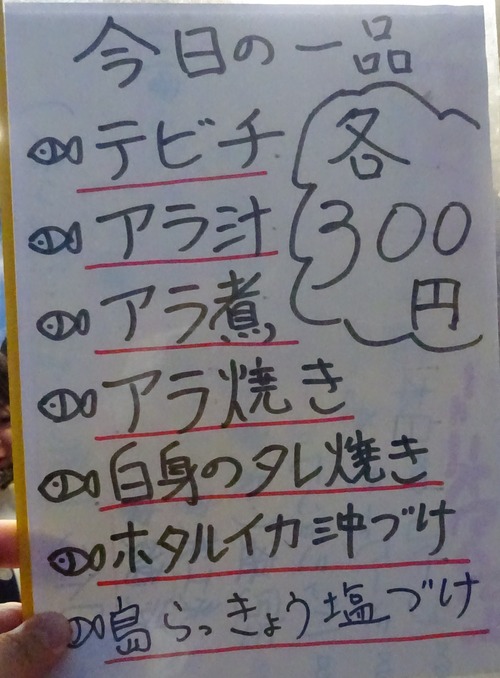 今日の一品
テビチ
アラ汁
アラ煮
アラ焼き
白身のタレ焼き
ホタルイカ沖づけ
島らっきょう塩づけ
各
300
円